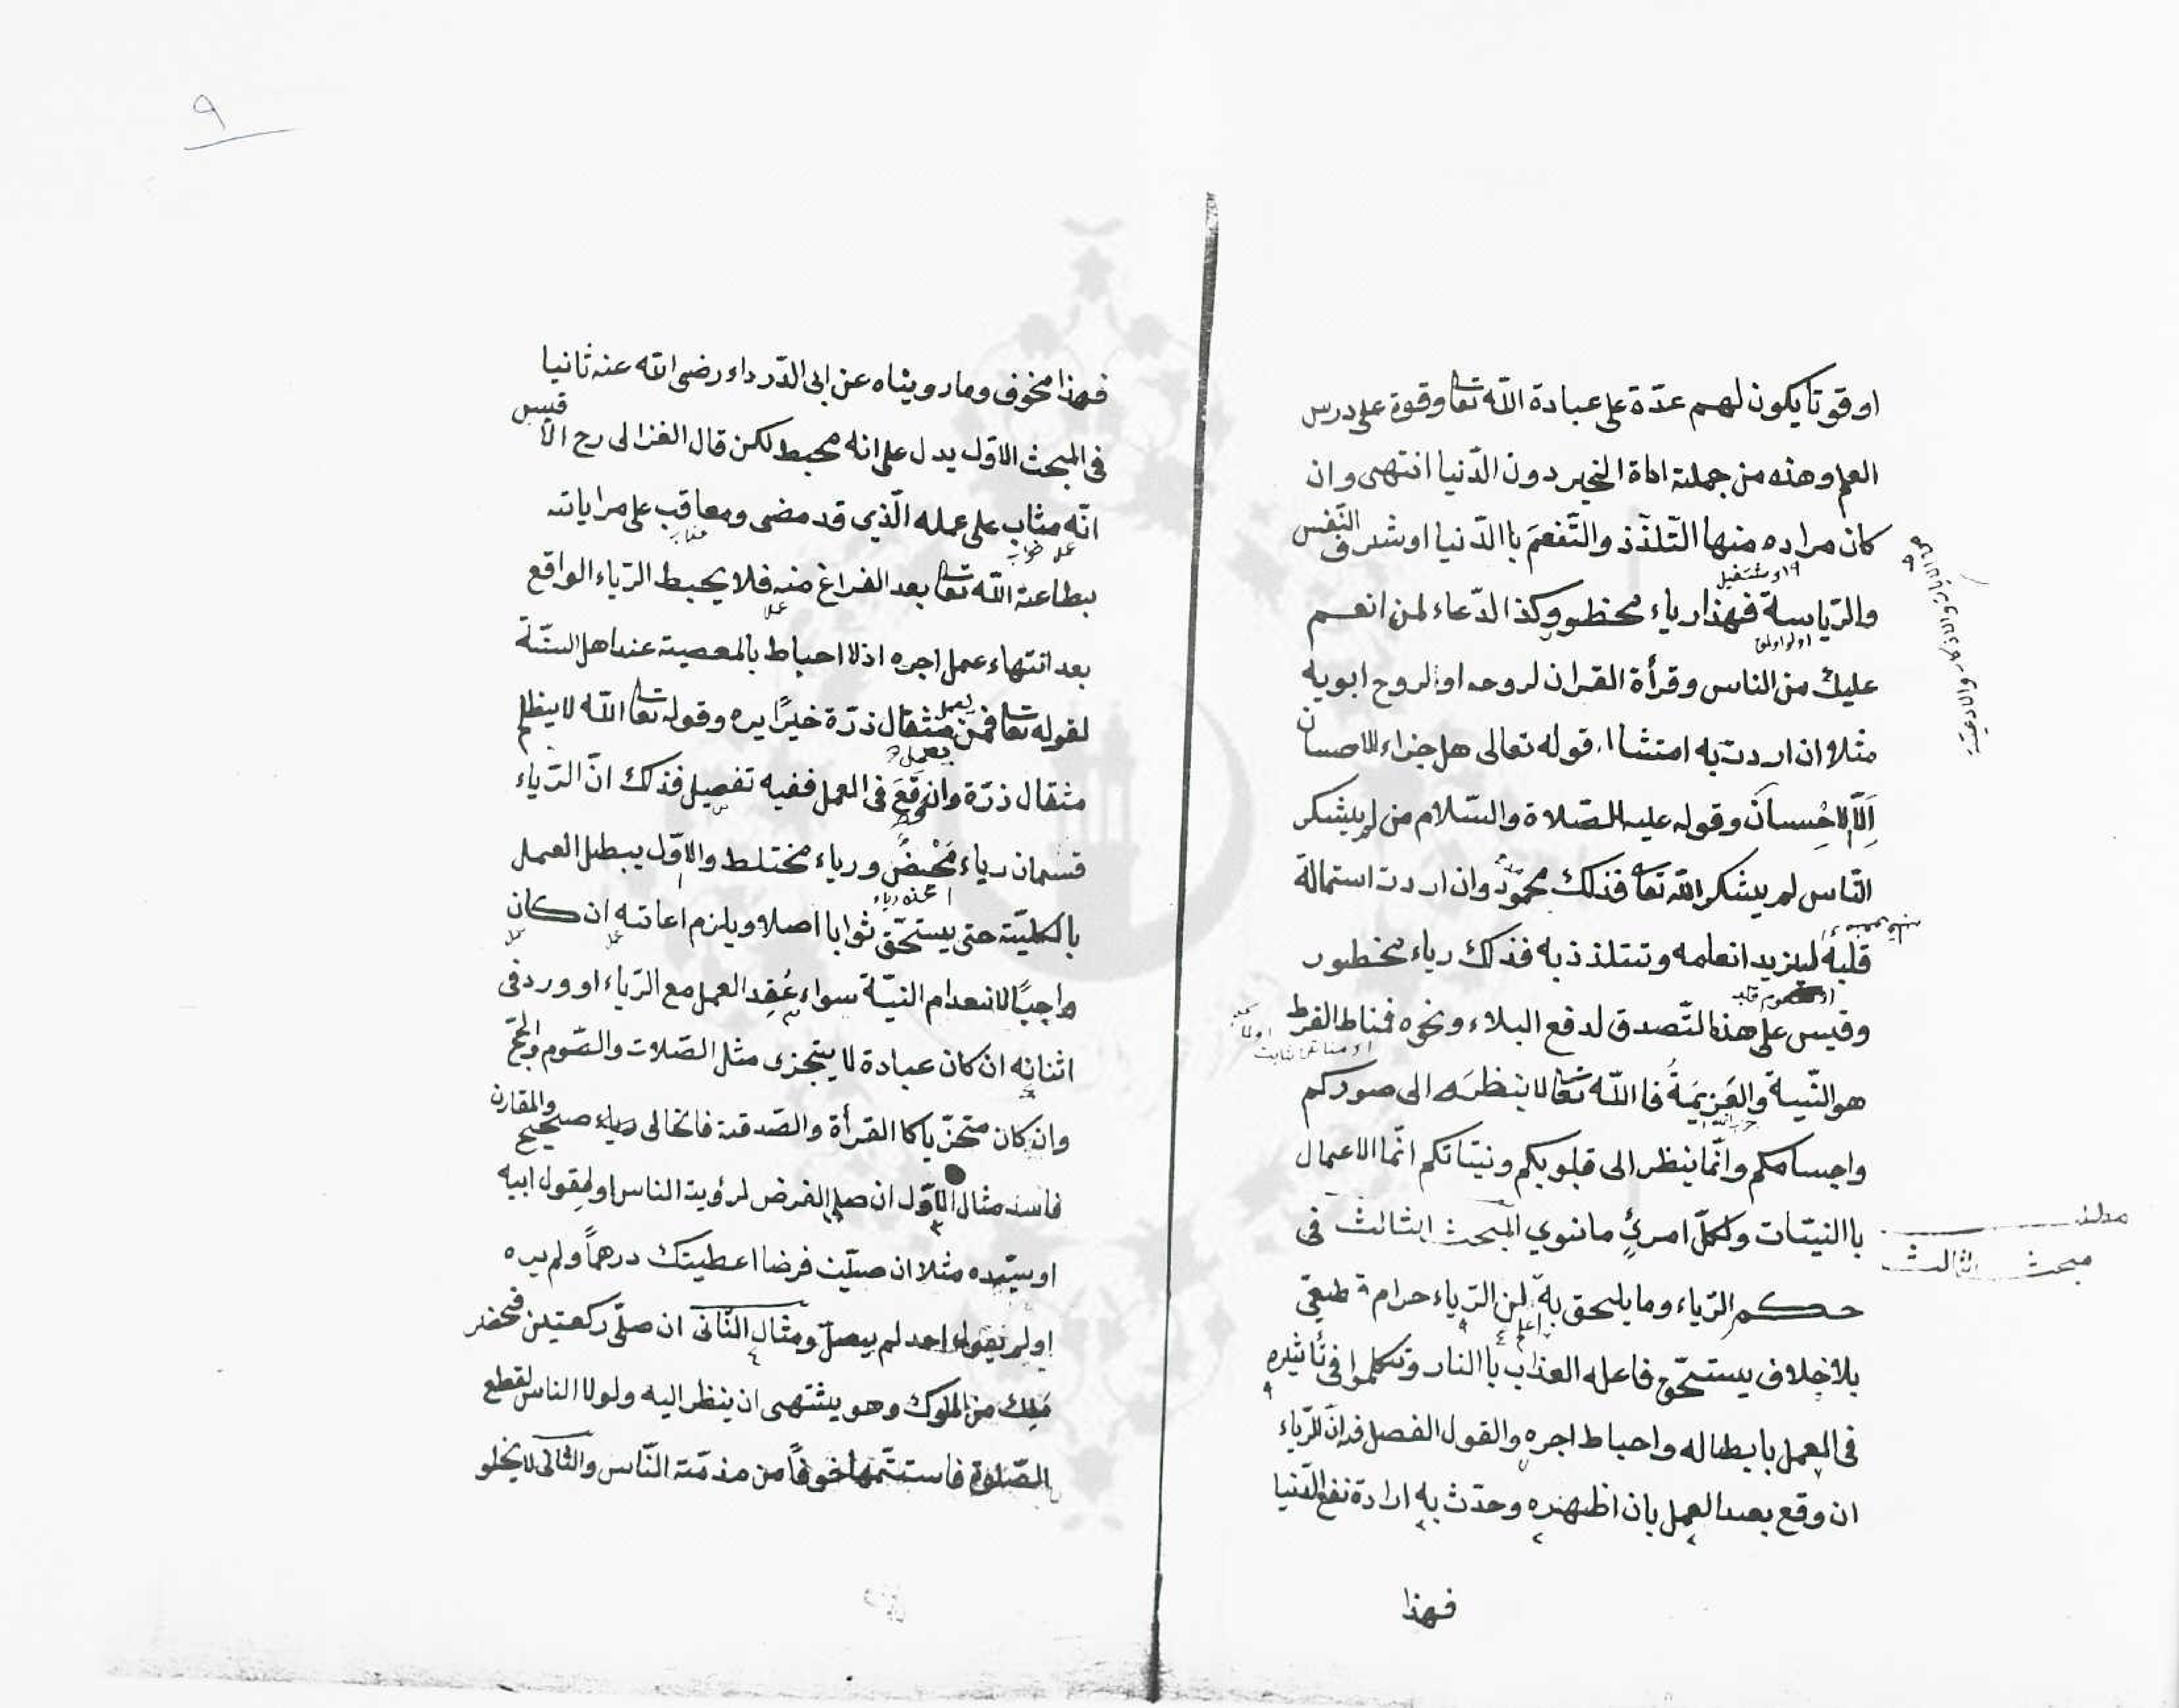 ٩
او قوتا يكون لهم عدّة على عبادة اللّه تعا وقوة على درس
العلم وهذه من جملة ارادة الخير دون الدّنيا انتهى وان
كان مراده منها التّلذّذ والتّنعم باالدّنيا او شرف النّفس
والرّياسة فهذا رياء محظور وكذا الدّعاء لمن انعم
عليك من الناس وقرأة القران لروحه او لروح ابويه
مثلا ان اردت به امتثال قوله تعالى هل جزاء الاحسان
اِلَّا الاِحْسان وقوله عليه الصّلاة والسّلام من لم يشكر
النّاس لم يشكر اللّه تعا فذلك محمود وان اردت استمالة
قلبه ليزيد انعامه وتتلذذ به فذلك رياء محظور
وقيس على هذا التّصدق لدفع البلاء ونحوه فمناط الفرق
هو النّية والعَزِيمَةُ فا اللّه تعا لا ينظر الى صوركم
واجسامكم وانّما ينظر الى قلوبكم ونيّاتكم انّما الاعمال
باالنيّات ولكلّ امرئٍ مانوي المبحث الثالث فى
مبحث الثالث
حكم الرّياء وما يلحق به لن الرّياء حرام قطيعي
بلا خلاف يستحّق فاعله العذاب باالنار وتكلموا فى تأثيره
فى العمل بابطاله واحباط اجره والقول الفصل فيه انّ الرّياء
ان وقع بعد العمل بان اظهره وحدّث به ارادة نفع الدّنيا
فهذا
فهذا مخوف وما رويناه عن ابى الدّرداء رضى اللّه عنه ثانيا
فى المبحث الاوّل يدل على انه محبط لكن قال الغزالى رح الاقيس
انّه مثاب على عمله الّذي قد مضى ومعاقب على مراياته
بطاعة اللّه تعا بعد الفراغ منه فلا يحبط الرّياء الواقع
بعد انتهاء عمل اجره اذ لا احباط بالمعصية عند اهل السّنّة
لقوله تعا فمن يعمل مثقال ذرّة خيرًا يره وقوله تعا اللّه لا يظلم
مثقال ذرّة وان وقَعَ فى العمل ففيه تفصيل فذلك انّ الرّياء
قسمان رياء مَحْضٌ ورياء مختلط والاوّل يبطل العمل
بالكليّة حتى يستحّق ثوابا اصلا ويلزم اعاته ان كان
واجبًا لانعدام النيّة سواء عُقِد العمل مع الرّياء او ورد فى
اثنانه ان كان عبادة لا يتجزى مثل الصّلات والصّوم والحجّ
وان كان متجزّيا كا القرأة والصّدقة فا لخالى رياء صحيح والمقارن
فاسد مثال الاوّل ان صلى الفرض لرؤية الناس او لقول ابيه
او سيّده مثلا ان صلّيت فرضا اعطيتك درهماً ولم يره
او لم يقوله احد لم يصلّ ومثال الثّانى ان صلّى ركعتين فحضر
مَلِك من الملوك وهو يشتهى ان ينظر اليه ولولا الناس لقطع
الصّلوة فاستتمّها خوفاً من مذمّة النّاس والثّانى لا يخلو